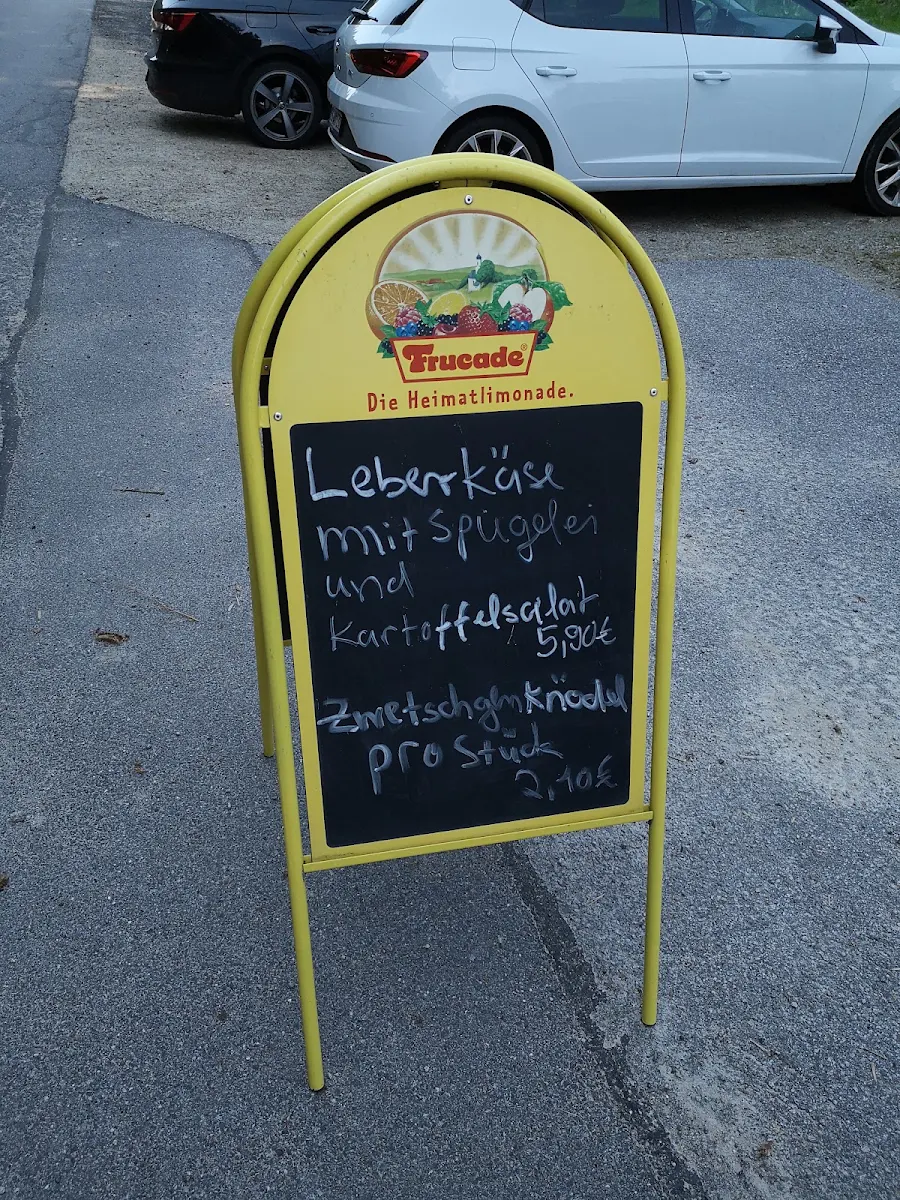 Frucade
Die Heimatlimonade.
Leberkäse
mit Spiegelei
und
Kartoffelsalat
5,90€
Zwetschgenknödel
pro Stück
2,10€